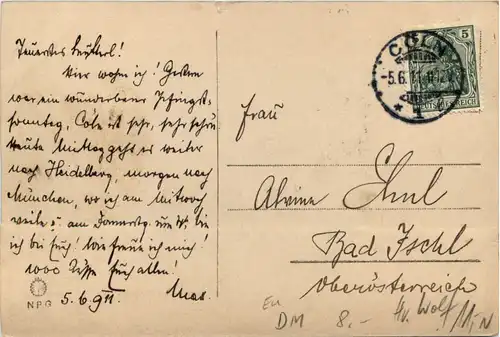 Teuerstes Mutterl!
Hier wohne ich! Gestern
war ein wunderbarer Pfingst-
sonntag, Cöln ist sehr, sehr schön
Heute Mittag geht es weiter
nach Heidelberg, morgen nach
München, wo ich am Mittwoch
weile u. am Donnerstg. bin
ich bei Euch! Wie freue ich mich!
1000 Küsse Euch allen!
5.6.911.
NPG
CÖLN
5.6.11.
1
5
DEUTSCHES REICH
Frau
Alwine
Bad Ischl
Oberösterreich
DM 8.-